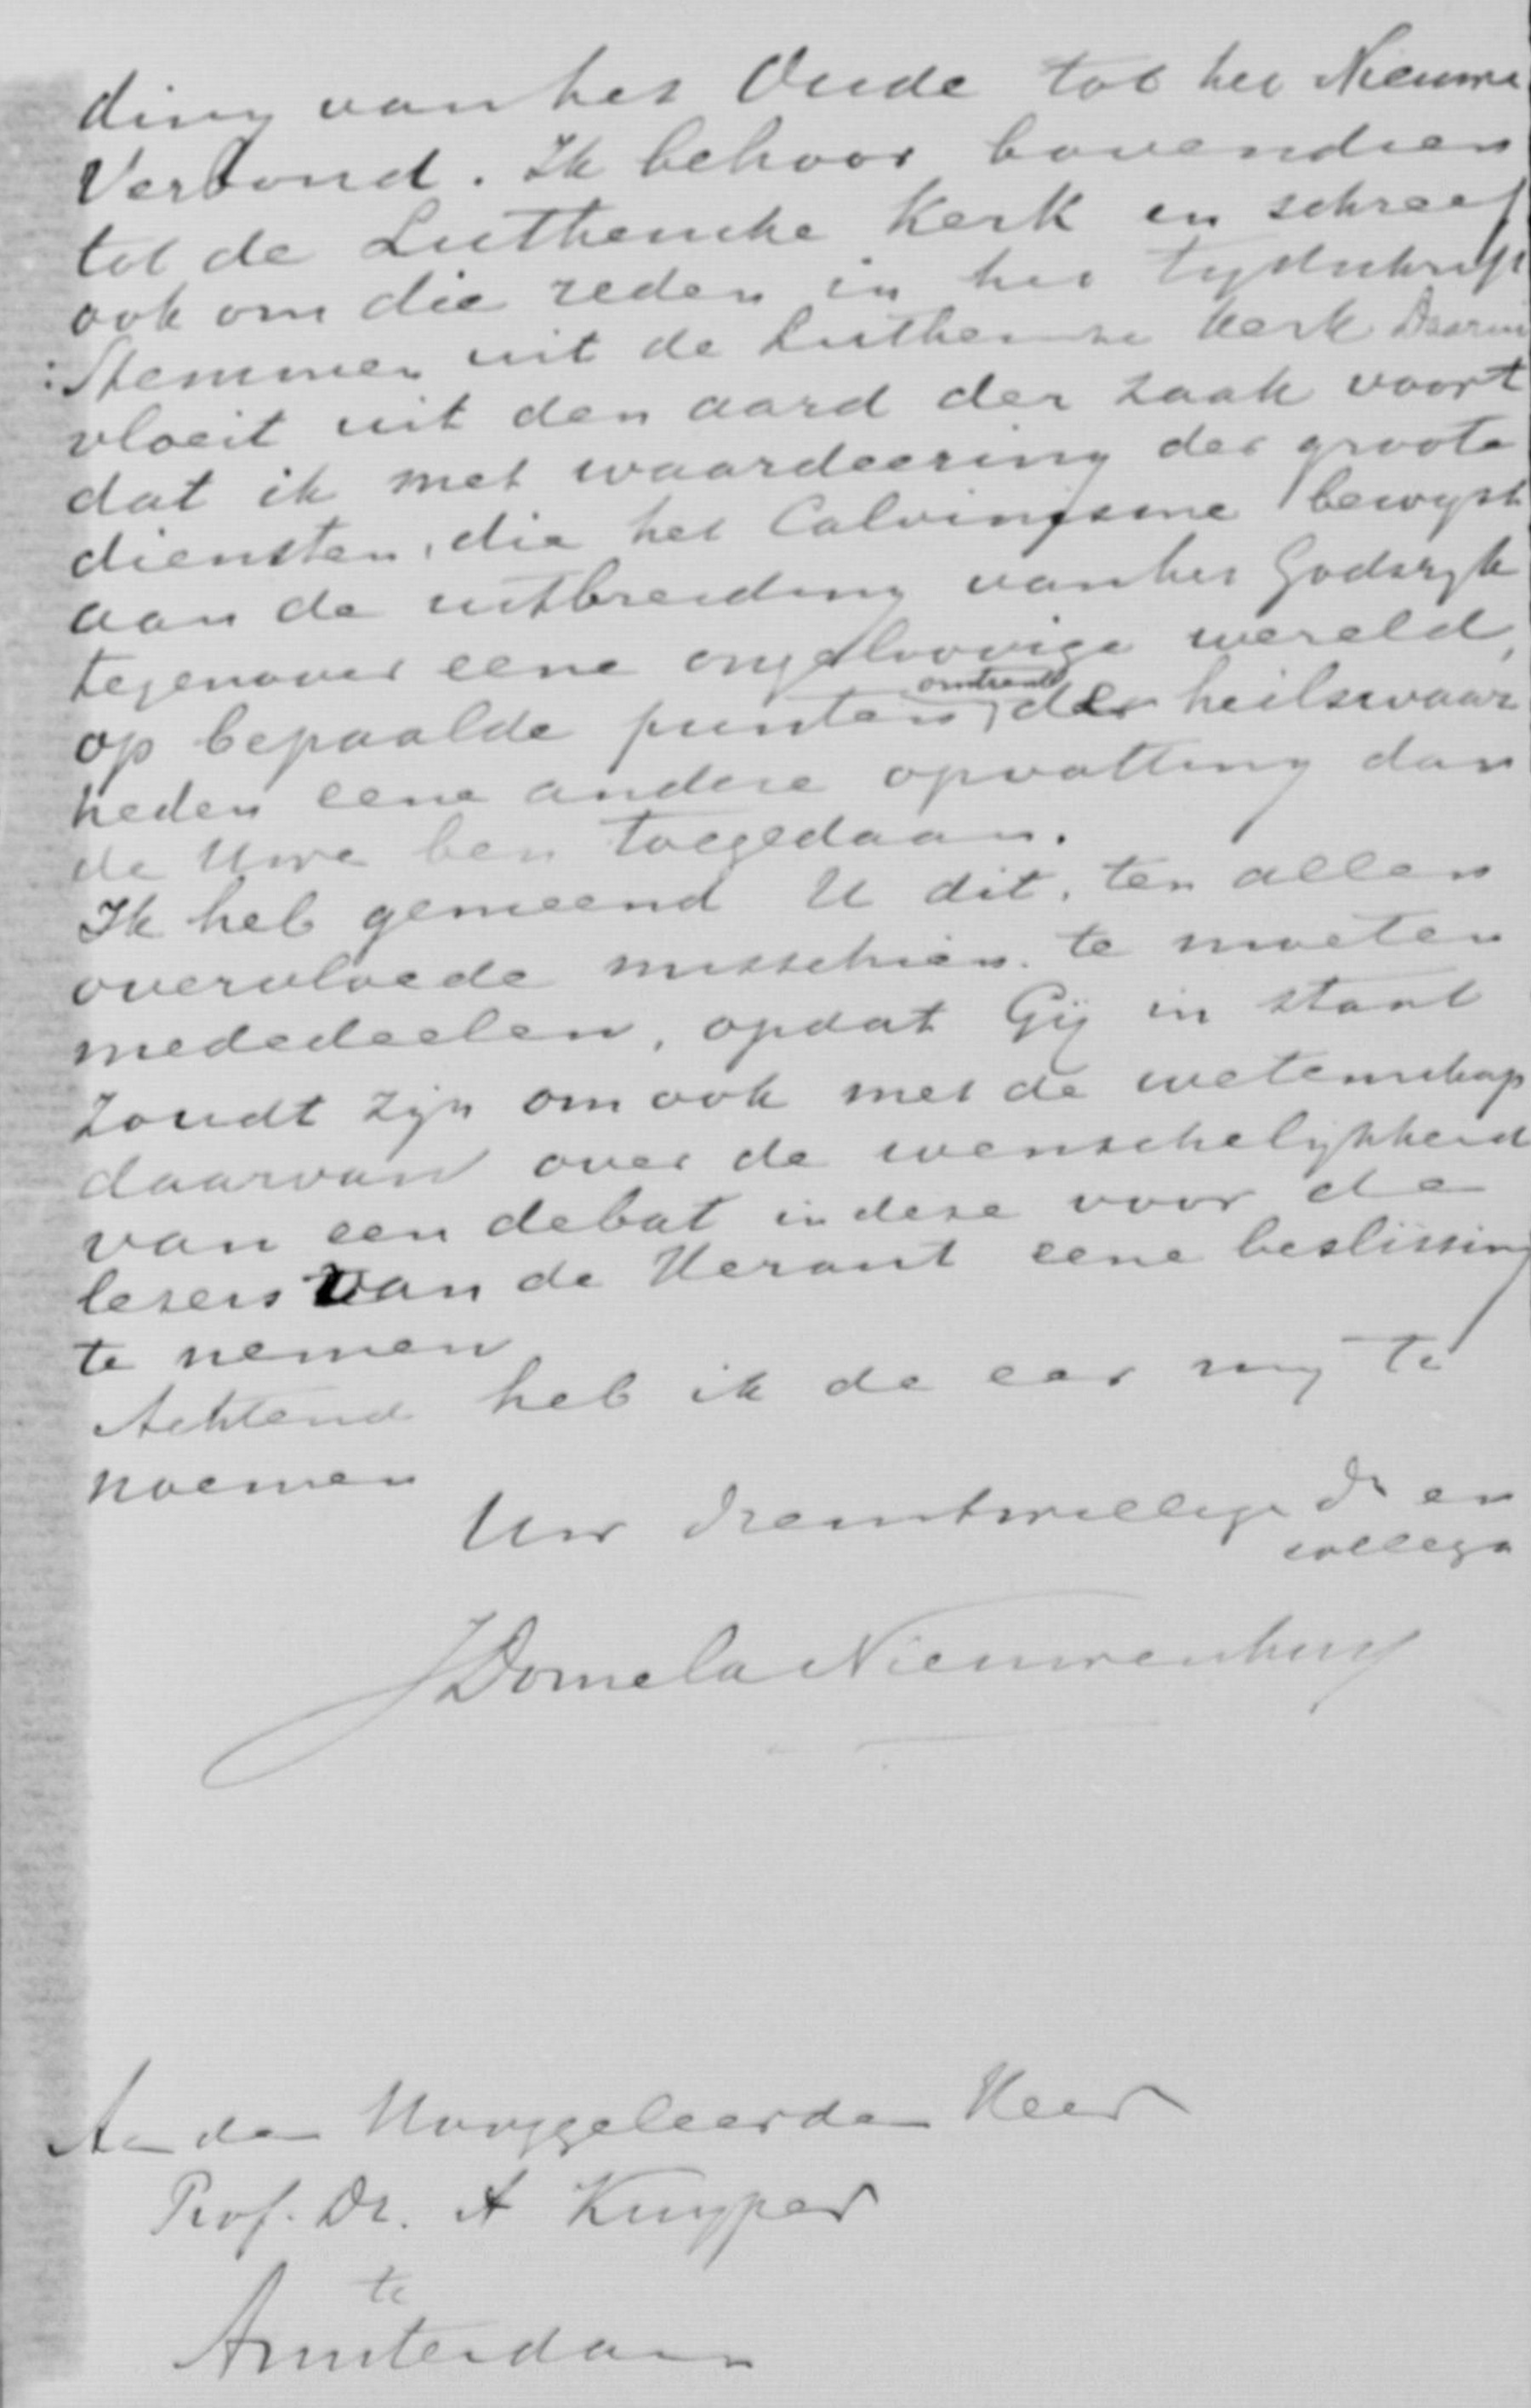 ding van het Oude tot het Nieuwe
Verbond. Ik behoor bovendien
tot de Luthersche Kerk en schreef
ook om die reden in het tijdschrift
: Stemmen uit de Luthersche Kerk Daaruit
vloeit uit den aard der zaak voort
dat ik met waardeering der groote
diensten, die het Calvinisme bewijst
aan de uitbreiding van het Godsrijk
tegenover eene ongeloovige wereld,
omtrent
op bepaalde punten, der heilswaar
heden eene andere opvatting dan
de Uwe ben toegedaan.
Ik heb gemeend U dit, ten allen
overvloede misschien te moeten
mededeelen, opdat Gij in staat
zoudt zijn om ook met de wetenschap
daarvan over de wenschelijkheid
van een debat in deze voor de
lezers van de Heraut eene beslissing
te nemen
Achtend heb ik de eer mij te
noemen
Uw dienstwillige Dr en
collega
J Domela Nieuwenhuis
Aan den Hooggeleerden Heer
Prof. Dr. A Kuyper
te
Amsterdam